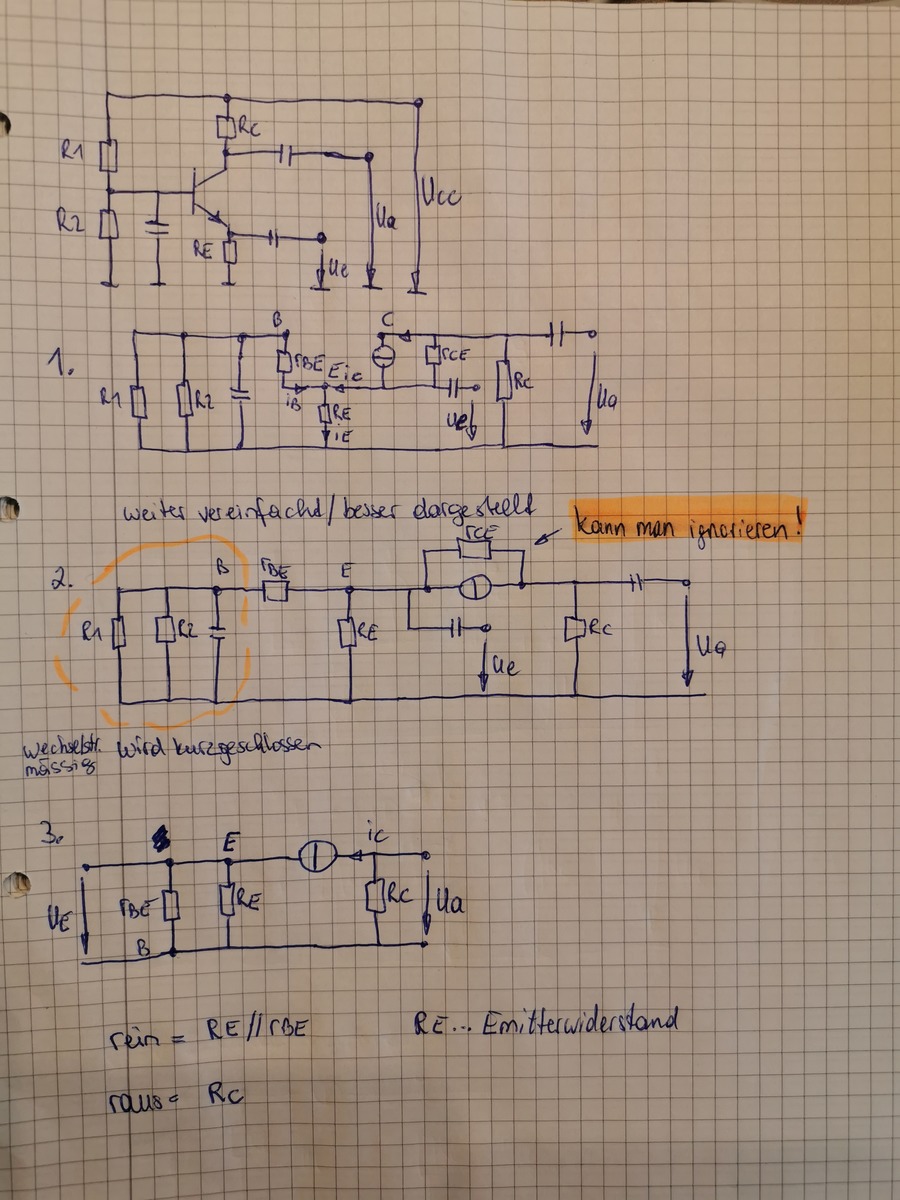 RC
R1
R2
UCC
Ua
RE
Ue
1.
B
C
rBE
E
iC
rCE
R1
R2
RC
iB
RE
Ue
Ua
iE
weiter vereinfacht/besser dargestellt
kann man ignorieren!
rCE
2.
B
rBE
E
R1
R2
RE
RC
Ue
Ua
wechselstr.
mässig
wird kurzgeschlossen
3.
E
iC
UE
rBE
RE
RC
Ua
B
rein = RE//rBE
RE... Emitterwiderstand
raus = RC